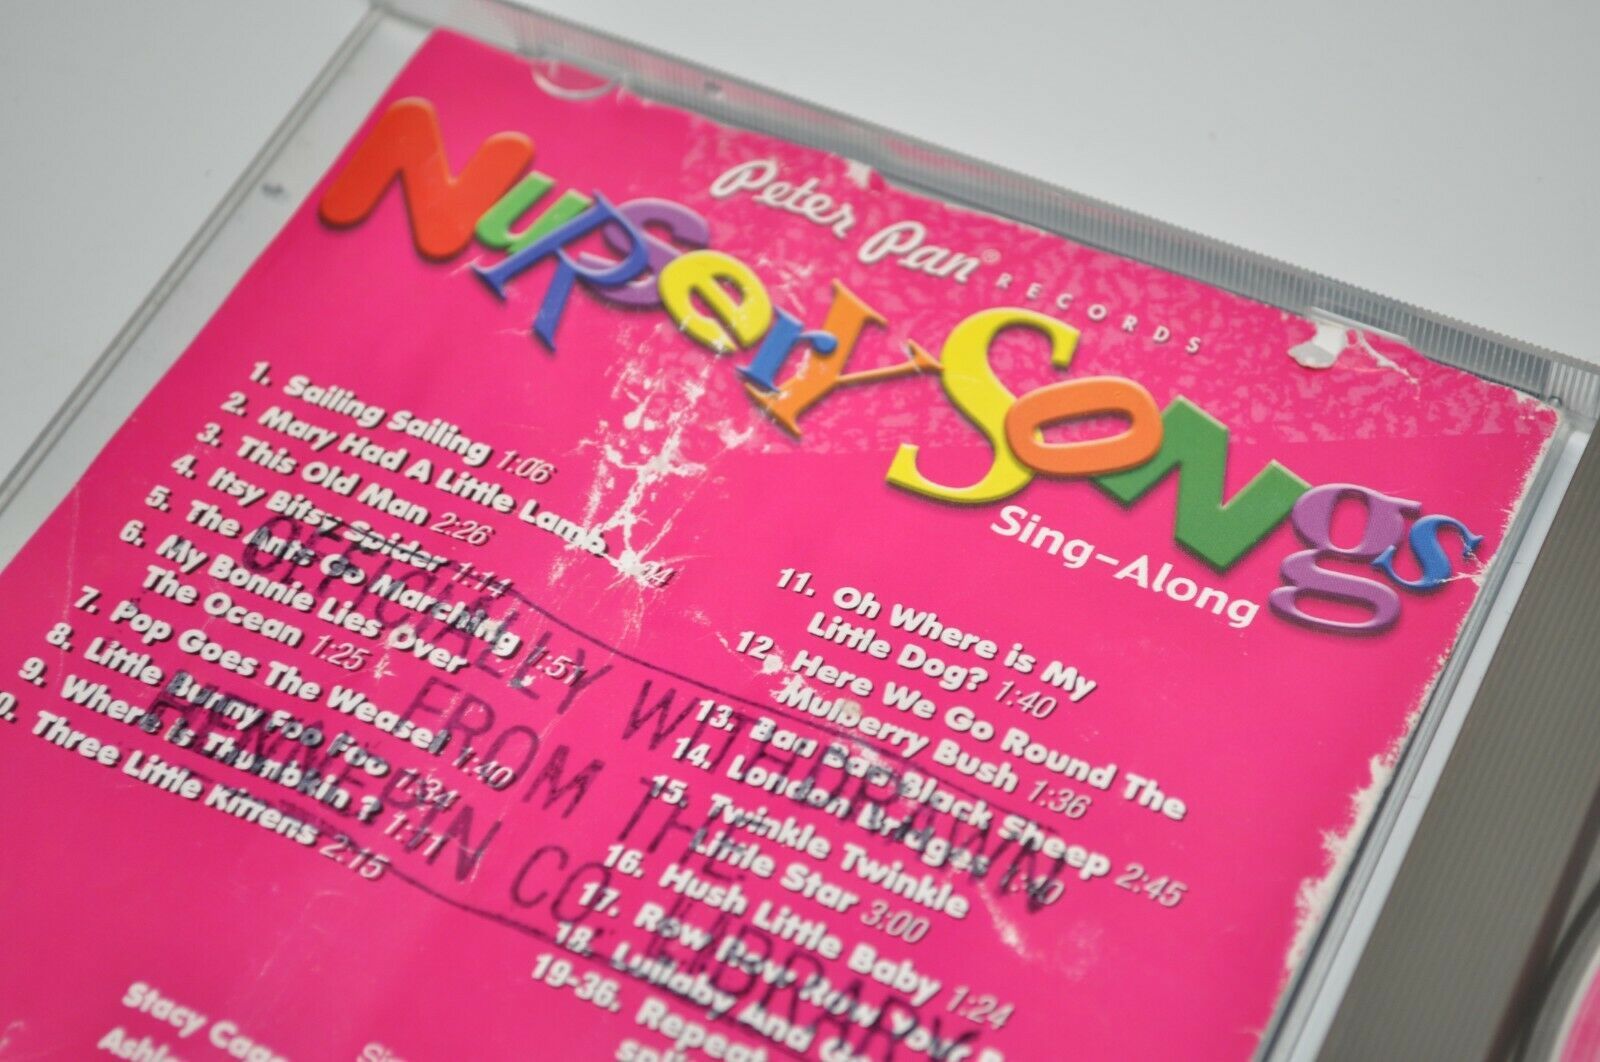 Peter Pan® RECORDS
Nursery Songs
Sing-Along
1. Sailing Sailing 1:06
2. Mary Had A Little Lamb
3. This Old Man 2:26
4. Itsy Bitsy Spider 1:44
5. The Ants Go Marching 1:51
6. My Bonnie Lies Over
The Ocean 1:25
7. Pop Goes The Weasel 1:40
8. Little Bunny Foo Foo 1:34
9. Where is Thumbkin? 1:11
0. Three Little Kittens 2:15
11. Oh Where is My
Little Dog? 1:40
12. Here We Go Round The
Mulberry Bush 1:36
13. Baa Baa Black Sheep 2:45
14. London Bridges 1:40
15. Twinkle Twinkle
Little Star 3:00
16. Hush Little Baby 1:24
17. Row Row Row Your
18. Lullaby And
19-36. Repeat
Stacy
OFFICIALLY WITHDRAWN
FROM THE
HENNEPIN CO. LIBRARY